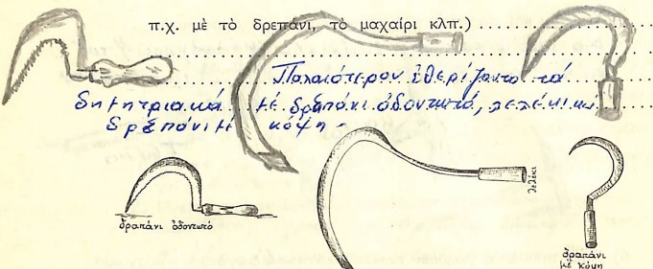 π.χ. μὲ τὸ δρεπάνι, τὸ μαχαίρι κλπ.)
Παλαιότερον ἐθερίζοντο τά
δημητριακά μέ δραπάνι ὀδοντωτό, λελέκι και
δρεπάνι μέ κόψη -
δραπάνι ὀδοντωτό
λελέκι
δραπάνι
μέ κόψη